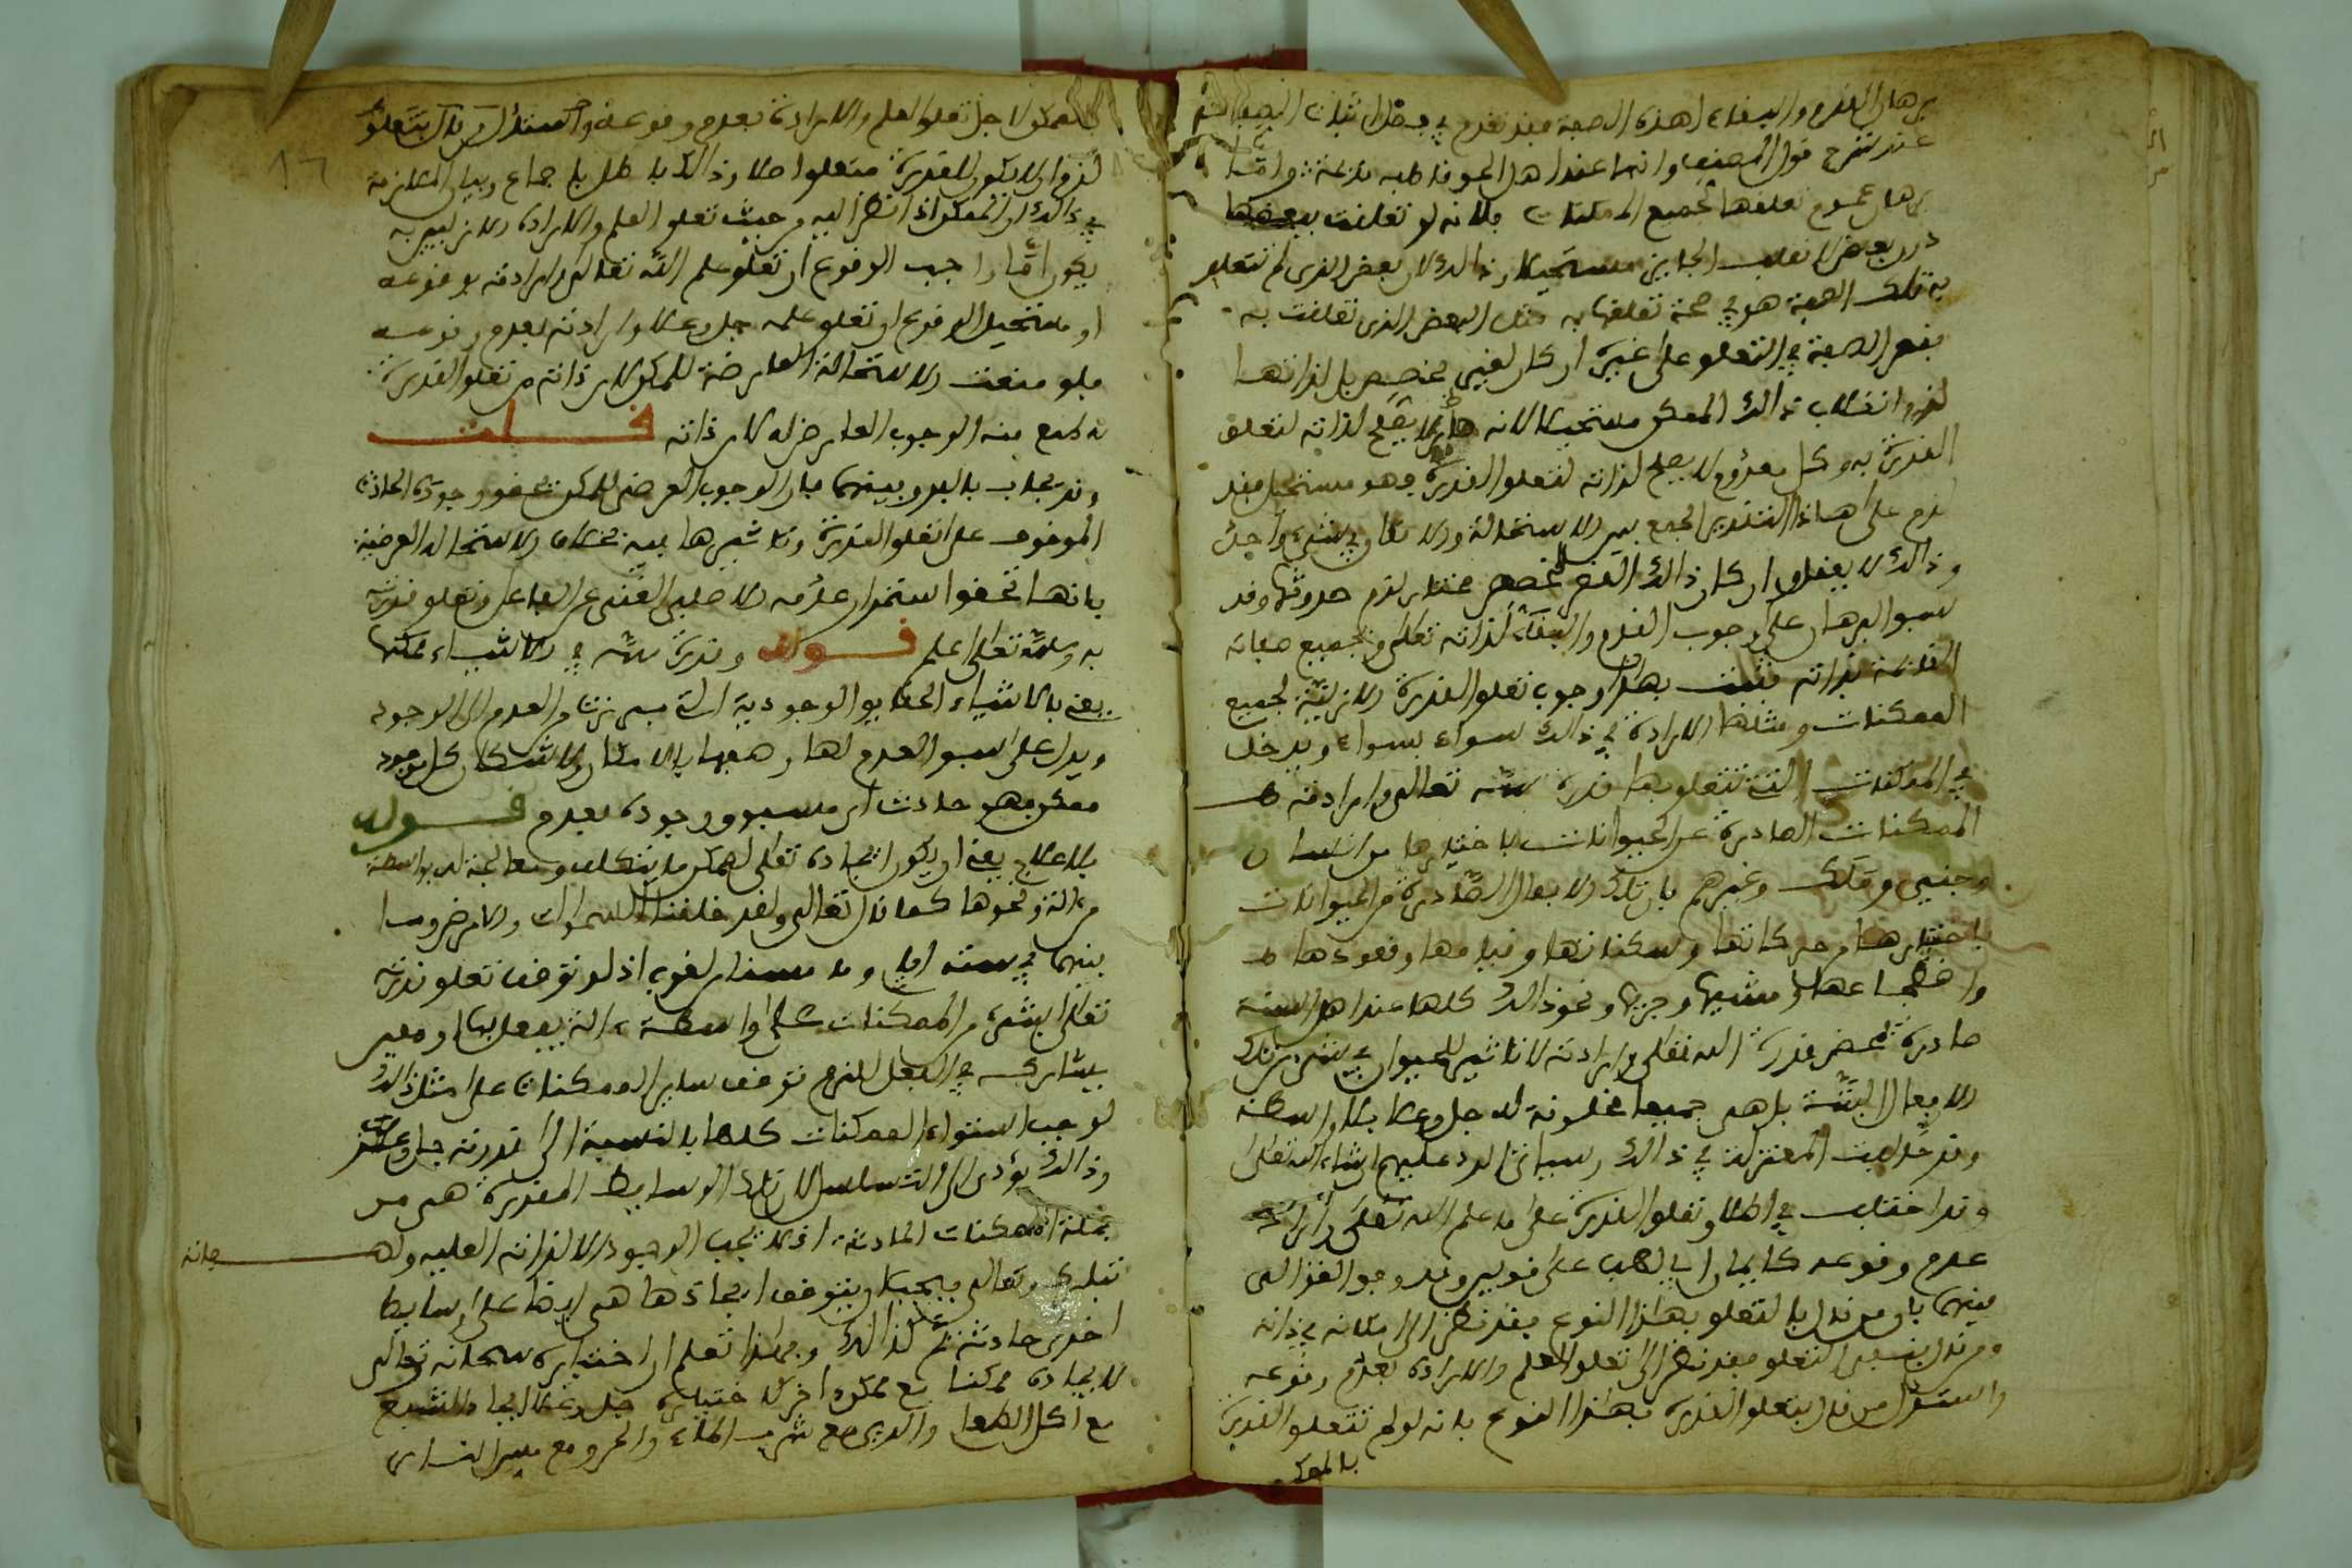 برهان القدم والبقاء لهذه الصفة فقد تقدم في فصل اثبات الصفات ثم
عند شرح قول المصنف وانها عند اهل الحق قاطبه قديمة واما
برهان عموم تعلقها بجميع الممكنات فلانه لو تعلقت ببعضها
دون بعض لانقلب الجايز مستحيلا وذالك لان بعض الذي لم تتعلق
به تلك الصفة هو في صحة تعلقها به مثل البعض الذي تعلقت به
فقصر الصفة في التعلق على غيره ان كان لغير مخصص بل لذاتها
لزم انقلاب ذالك الممكن مستحيلا لانه لا يصلح لذاته لتعلق
القدرة به وكل معدوم لا يصلح لذاته لتعلق القدرة فهو مستحيل فقد
لزم على هذا التقدير الجمع بين الاستحالة والامكان في شيء واحد
وذالك لا يعقل وان كان ذالك القصر لمخصص مختار لزم حدوثها وقد
سبق البرهان على وجوب القدم والبقاء لذاته تعالى ولجميع صفاته
القائمة بذاته فثبت بهذا وجوب تعلق القدرة الازلية لجميع
الممكنات ومثلها الارادة في ذالك سواء بسواء ويدخل
في الممكنات التي تتعلق بها قدرة الله تعالى وارادته
الممكنات الصادرة عن الحيوانات باختيارها من انسان
وجني وملك وغيرهم بان تلك الافعال الصادرة من الحيوانات
باختيارها من حركاتها وسكناتها وقيامها وقعودها
واضطجاعها ومشيها وجريها ونحو ذالك كلها عند اهل السنة
صادرة بمحض قدرة الله تعالى وارادته لا تاثير للحيوان في شيء من تلك
الافعال البتة بل هي جميعا مخلوقة لله جل وعلا بلا واسطة
وقد خالفت المعتزلة في ذالك وسياتي الرد عليهم ان شاء الله تعالى
وقد اختلف في اطلاق تعلق القدرة على ما علم الله تعالى واراد
عدم وقوعه كايمان ابي لهب على قولين وقد وفق الغزالي
بينهما بان من قال بالتعلق بهذا النوع فقد نظر الى امكانه في ذاته
ومن قال بنفي التعلق فقد نظر الى تعلق العلم والارادة بعدم وقوعه
واستدل من قال بتعلق القدرة بهذا النوع بانه لو لم تتعلق القدرة
بالممكن
١٦
بالممكن لاجل تعلق العلم والارادة بعدم وقوعه
لزم ان لا يكون للقدرة متعلق اصلا وذالك باطل باجماع وبيان الملازمة
في ذالك ان الممكن اذا نظر اليه من حيث تعلق العلم والارادة الازليين به
يكون اما واجب الوقوع ان تعلق علم الله تعالى وارادته بوقوعه
او مستحيل الوقوع ان تعلق علمه جل وعلا وارادته بعدم وقوعه
فلو منعت الاستحالة العارضة للممكن لا من ذاته من تعلق القدرة
به لمنع منه الوجوب العارض له لا من ذاته قلت
وقد يجاب بالفرق بينهما فان الوجوب العرضي للممكن يحقق وجوده الحادث
الموقوف على تعلق القدرة وتاثيرها فيه بخلاف الاستحالة العرضية
فانها تحقق استمرار عدمه الاصلي الغني عن الفاعل وتعلق قدرته
به والله تعالى اعلم قوله وقدرة الله في الاشياء ممكنها
يعني بالاشياء الحقايق الوجودية التي برزت من العدم الى الوجود
ويدل على سبق العدم لها وصفها بالامكان ولا شك ان كل موجود
ممكن فهو حادث اي مسبوق وجوده بعدم قوله
بلا علاج يعني ان يكون ايجاده تعالى لممكن ما بتكلف ومعالجة له بواسطة
من الة ونحوها كما قال تعالى ولقد خلقنا السموات والارض وما
بينهما في ستة ايام وما مسنا من لغوب اذ لو توقف تعلق قدرته
تعالى لشيء من الممكنات على واسطة الة يفعل بها او معين
يشاركه في الفعل للزم توقف ساير الممكنات على مثل ذالك
لوجوب استواء الممكنات كلها بالنسبة الى قدرته جل وعز
وذالك يؤدي الى التسلسل لان تلك الوسايط المقدرة هي من
جملة الممكنات الحادثة اذ لا يجب الوجود الا لذاته العلية ولصفاته
تبارك وتعالى فيجب ان يتوقف ايجادها هي ايضا على وسايط
اخرى حادثة ثم كذالك وبهذا تعلم ان اختياره سبحانه وتعالى
لايجاده ممكنا مع ممكن اخر كاختياره جل وعلا ايجاد الشبع
مع اكل الطعام والري مع شرب الماء والحرق مع مس النار